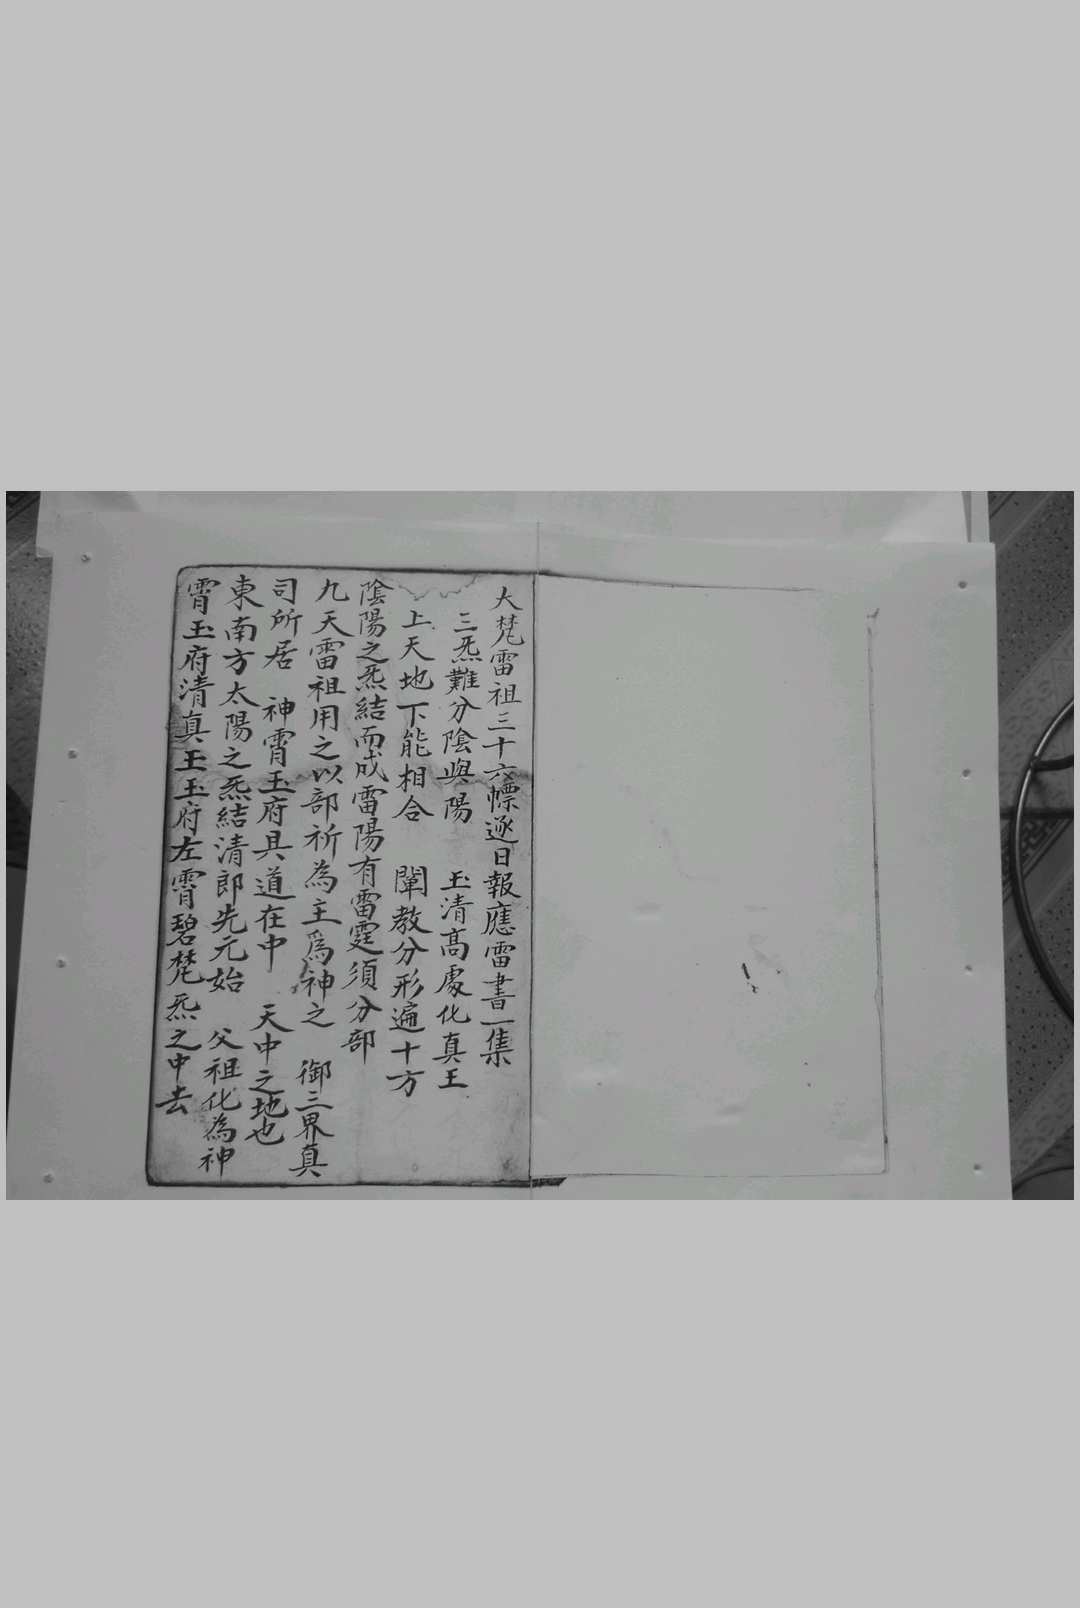 大梵雷祖三十六幖逐日報應雷書一集
三炁難分陰與陽　玉清高處化真王
上天地下能相合　闡教分形遍十方
陰陽之炁結而成雷陽有雷霆須分部
九天雷祖用之以部祈為主爲神之　御三界真
司所居　神霄玉府具道在中　天中之地也
東南方太陽之炁結清郎先元始　父祖化為神
霄玉府清真王玉府左霄碧梵炁之中去